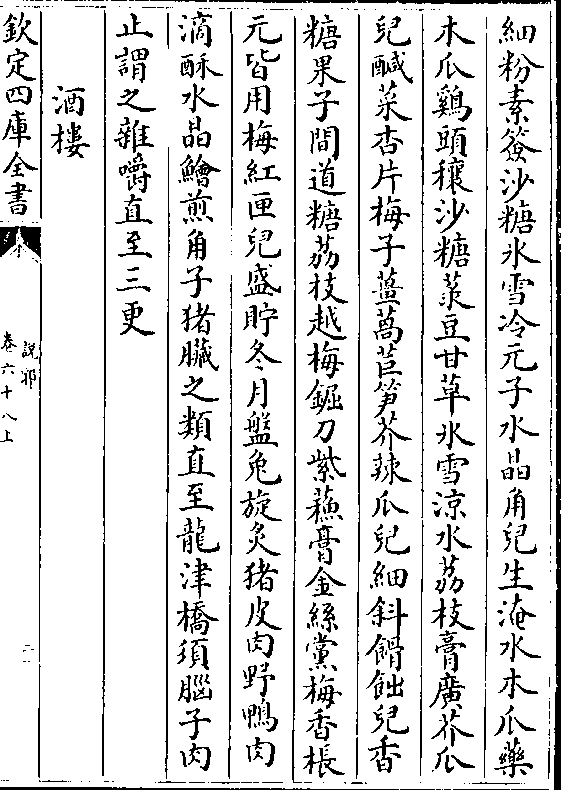 細粉素簽沙糖氷雪冷元子水晶角兒生淹水木瓜藥
木瓜鷄頭穰沙糖菉豆甘草氷雪凉水荔枝膏廣芥瓜
兒醎菜杏片梅子薑萵苣笋芥辣瓜兒細斜餶飿兒香
糖果子間道糖荔枝越梅鋸刀紫蘓膏金絲黨梅香棖
元皆用梅紅匣兒盛貯冬月盤兔旋炙猪皮肉野鴨肉
滴酥水晶鱠煎角子猪臟之類直至龍津橋須腦子肉
止謂之雜嚼直至三更
酒樓
欽定四庫全書
説郛
卷六十八上